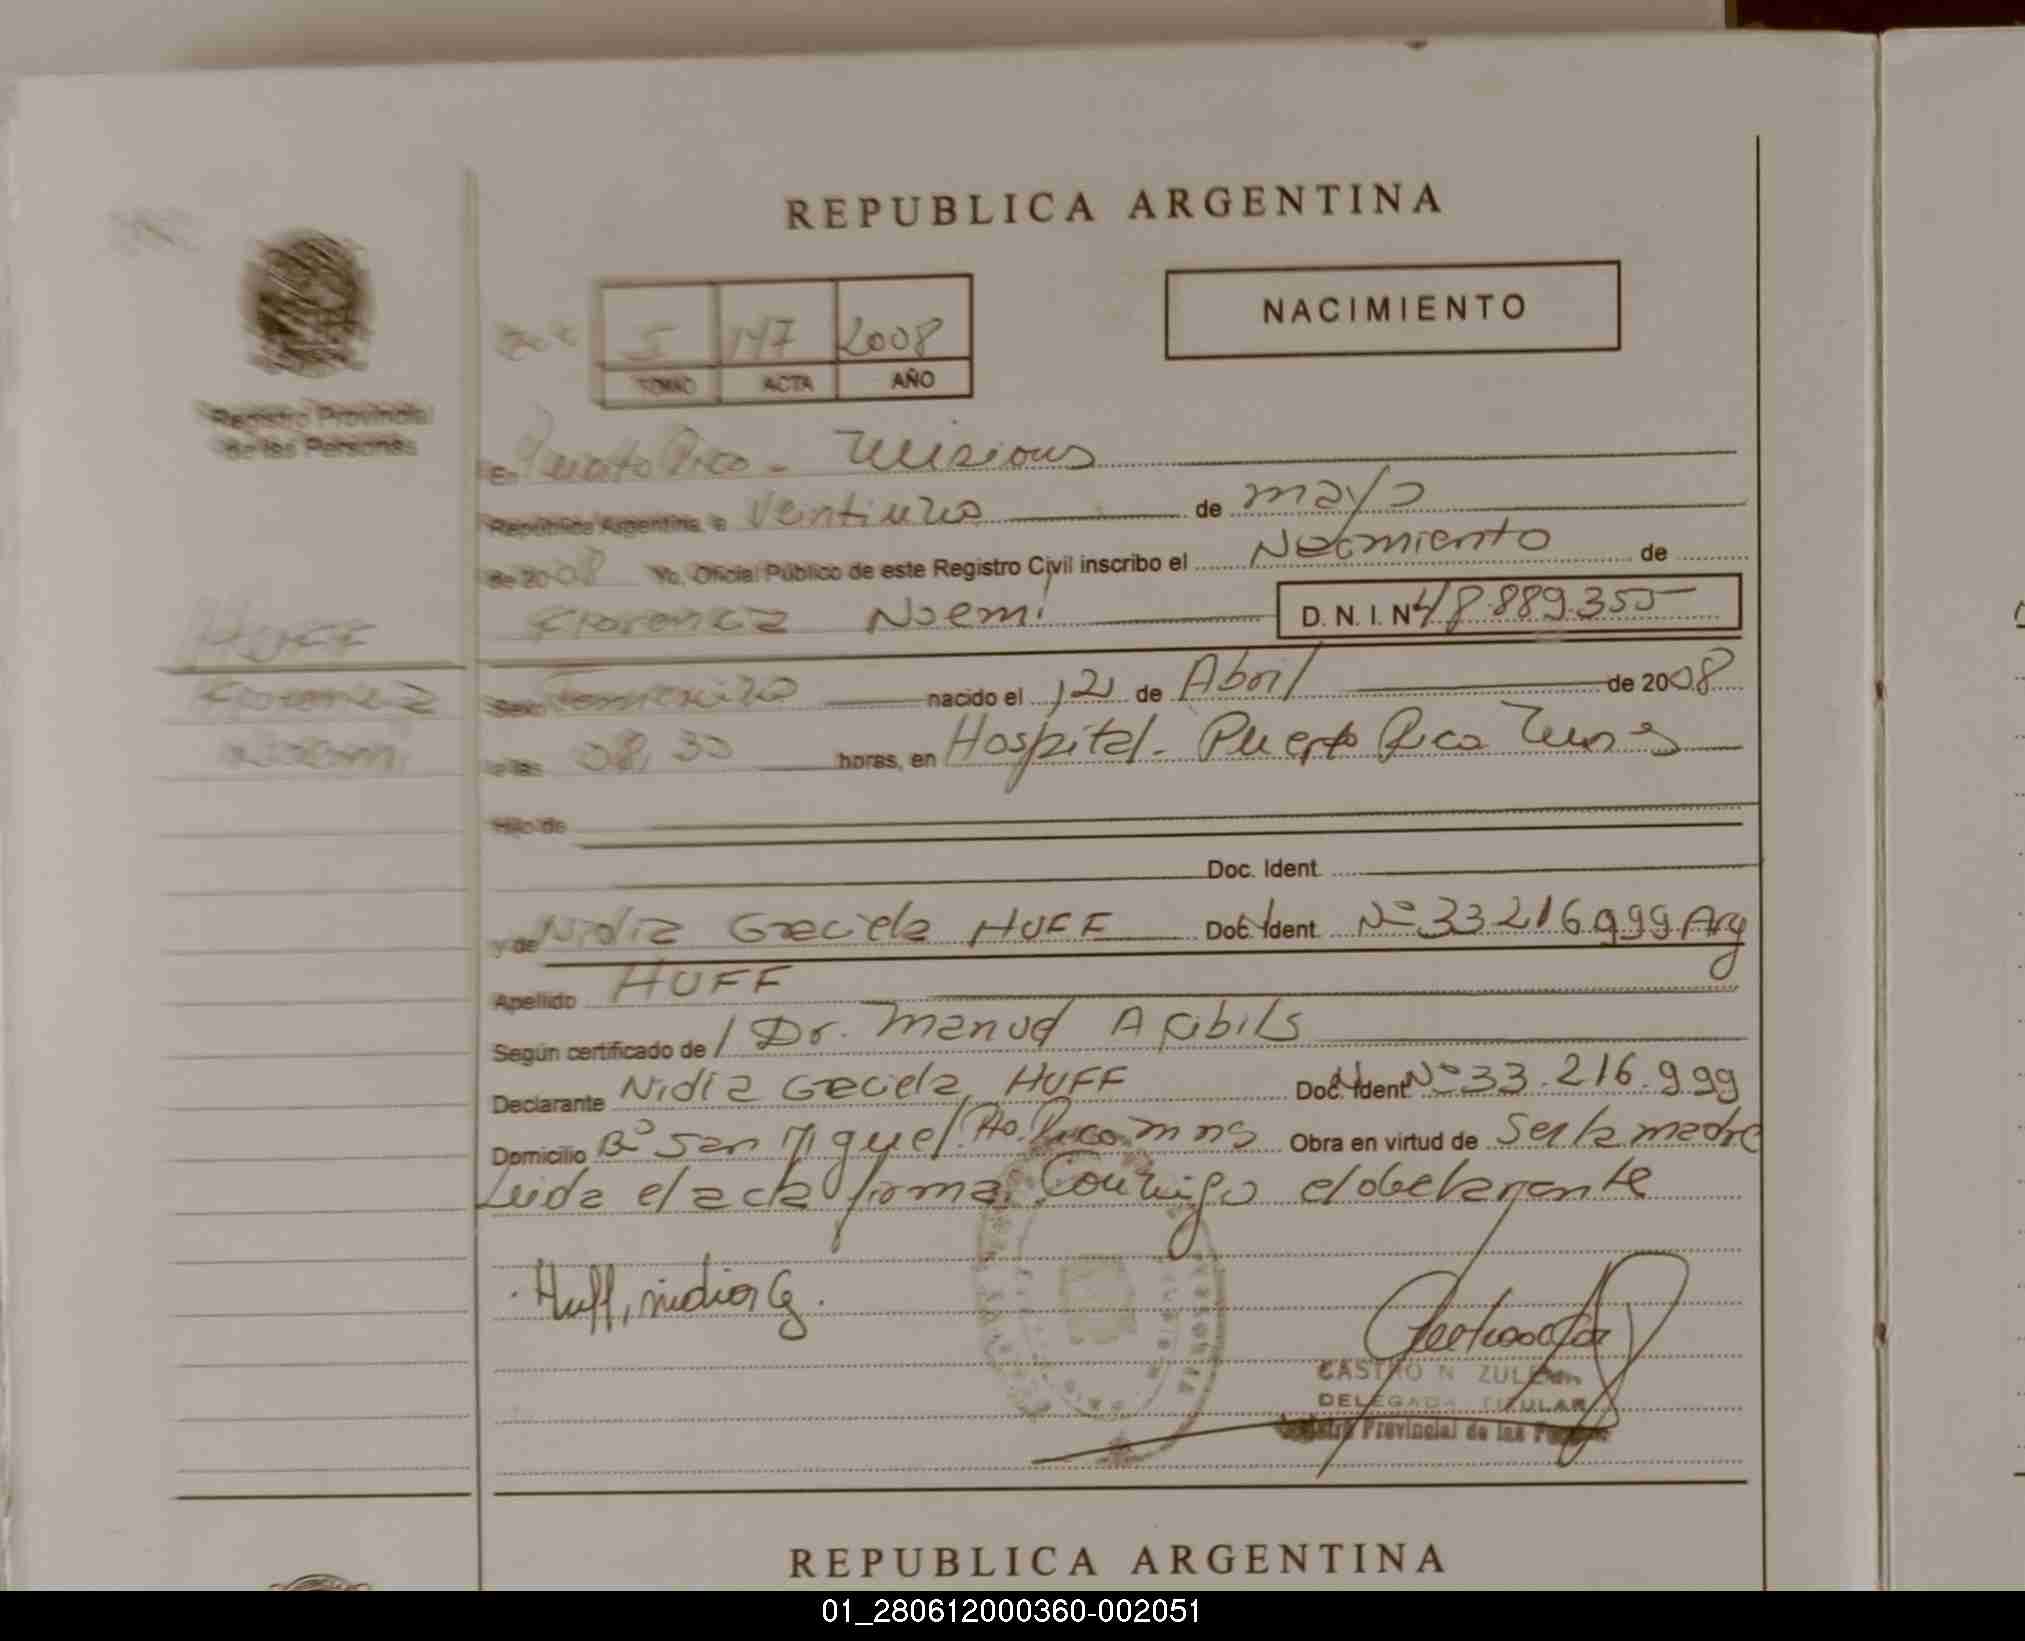 REPUBLICA ARGENTINA
NACIMIENTO
I 147 2008
TOMO ACTA AÑO
Registro Provincial
de las Personas
En Puerto Rico - Misiones
República Argentina, a Veintiuno de mayo
de 2008 Yo, Oficial Público de este Registro Civil inscribo el Nacimiento de
HUFF
Florencia Noemi D. N. I. Nº 48.889.355
Florencia
Noemi
Sexo Femenino nacido el 12 de Abril de 2008
a las 08,30 horas, en Hospital - Puerto Rico Mnes
Hijo de
Doc. Ident.
y de Nidia Graciela HUFF Doc. Ident. Nº 33 216 999 Arg
Apellido HUFF
Según certificado de Dr. Manuel A
Declarante Nidia Graciela HUFF Doc. Ident. Nº 33.216.999
Domicilio Bº San Miguel. Pto. Rico. mns Obra en virtud de Ser la madre
Leida el acta firma Conmigo el declarante
Huff, nidia G.
CASTRO N ZULEMA
DELEGADA TITULAR
Registro Provincial de las Personas
REPUBLICA ARGENTINA
01_280612000360-002051